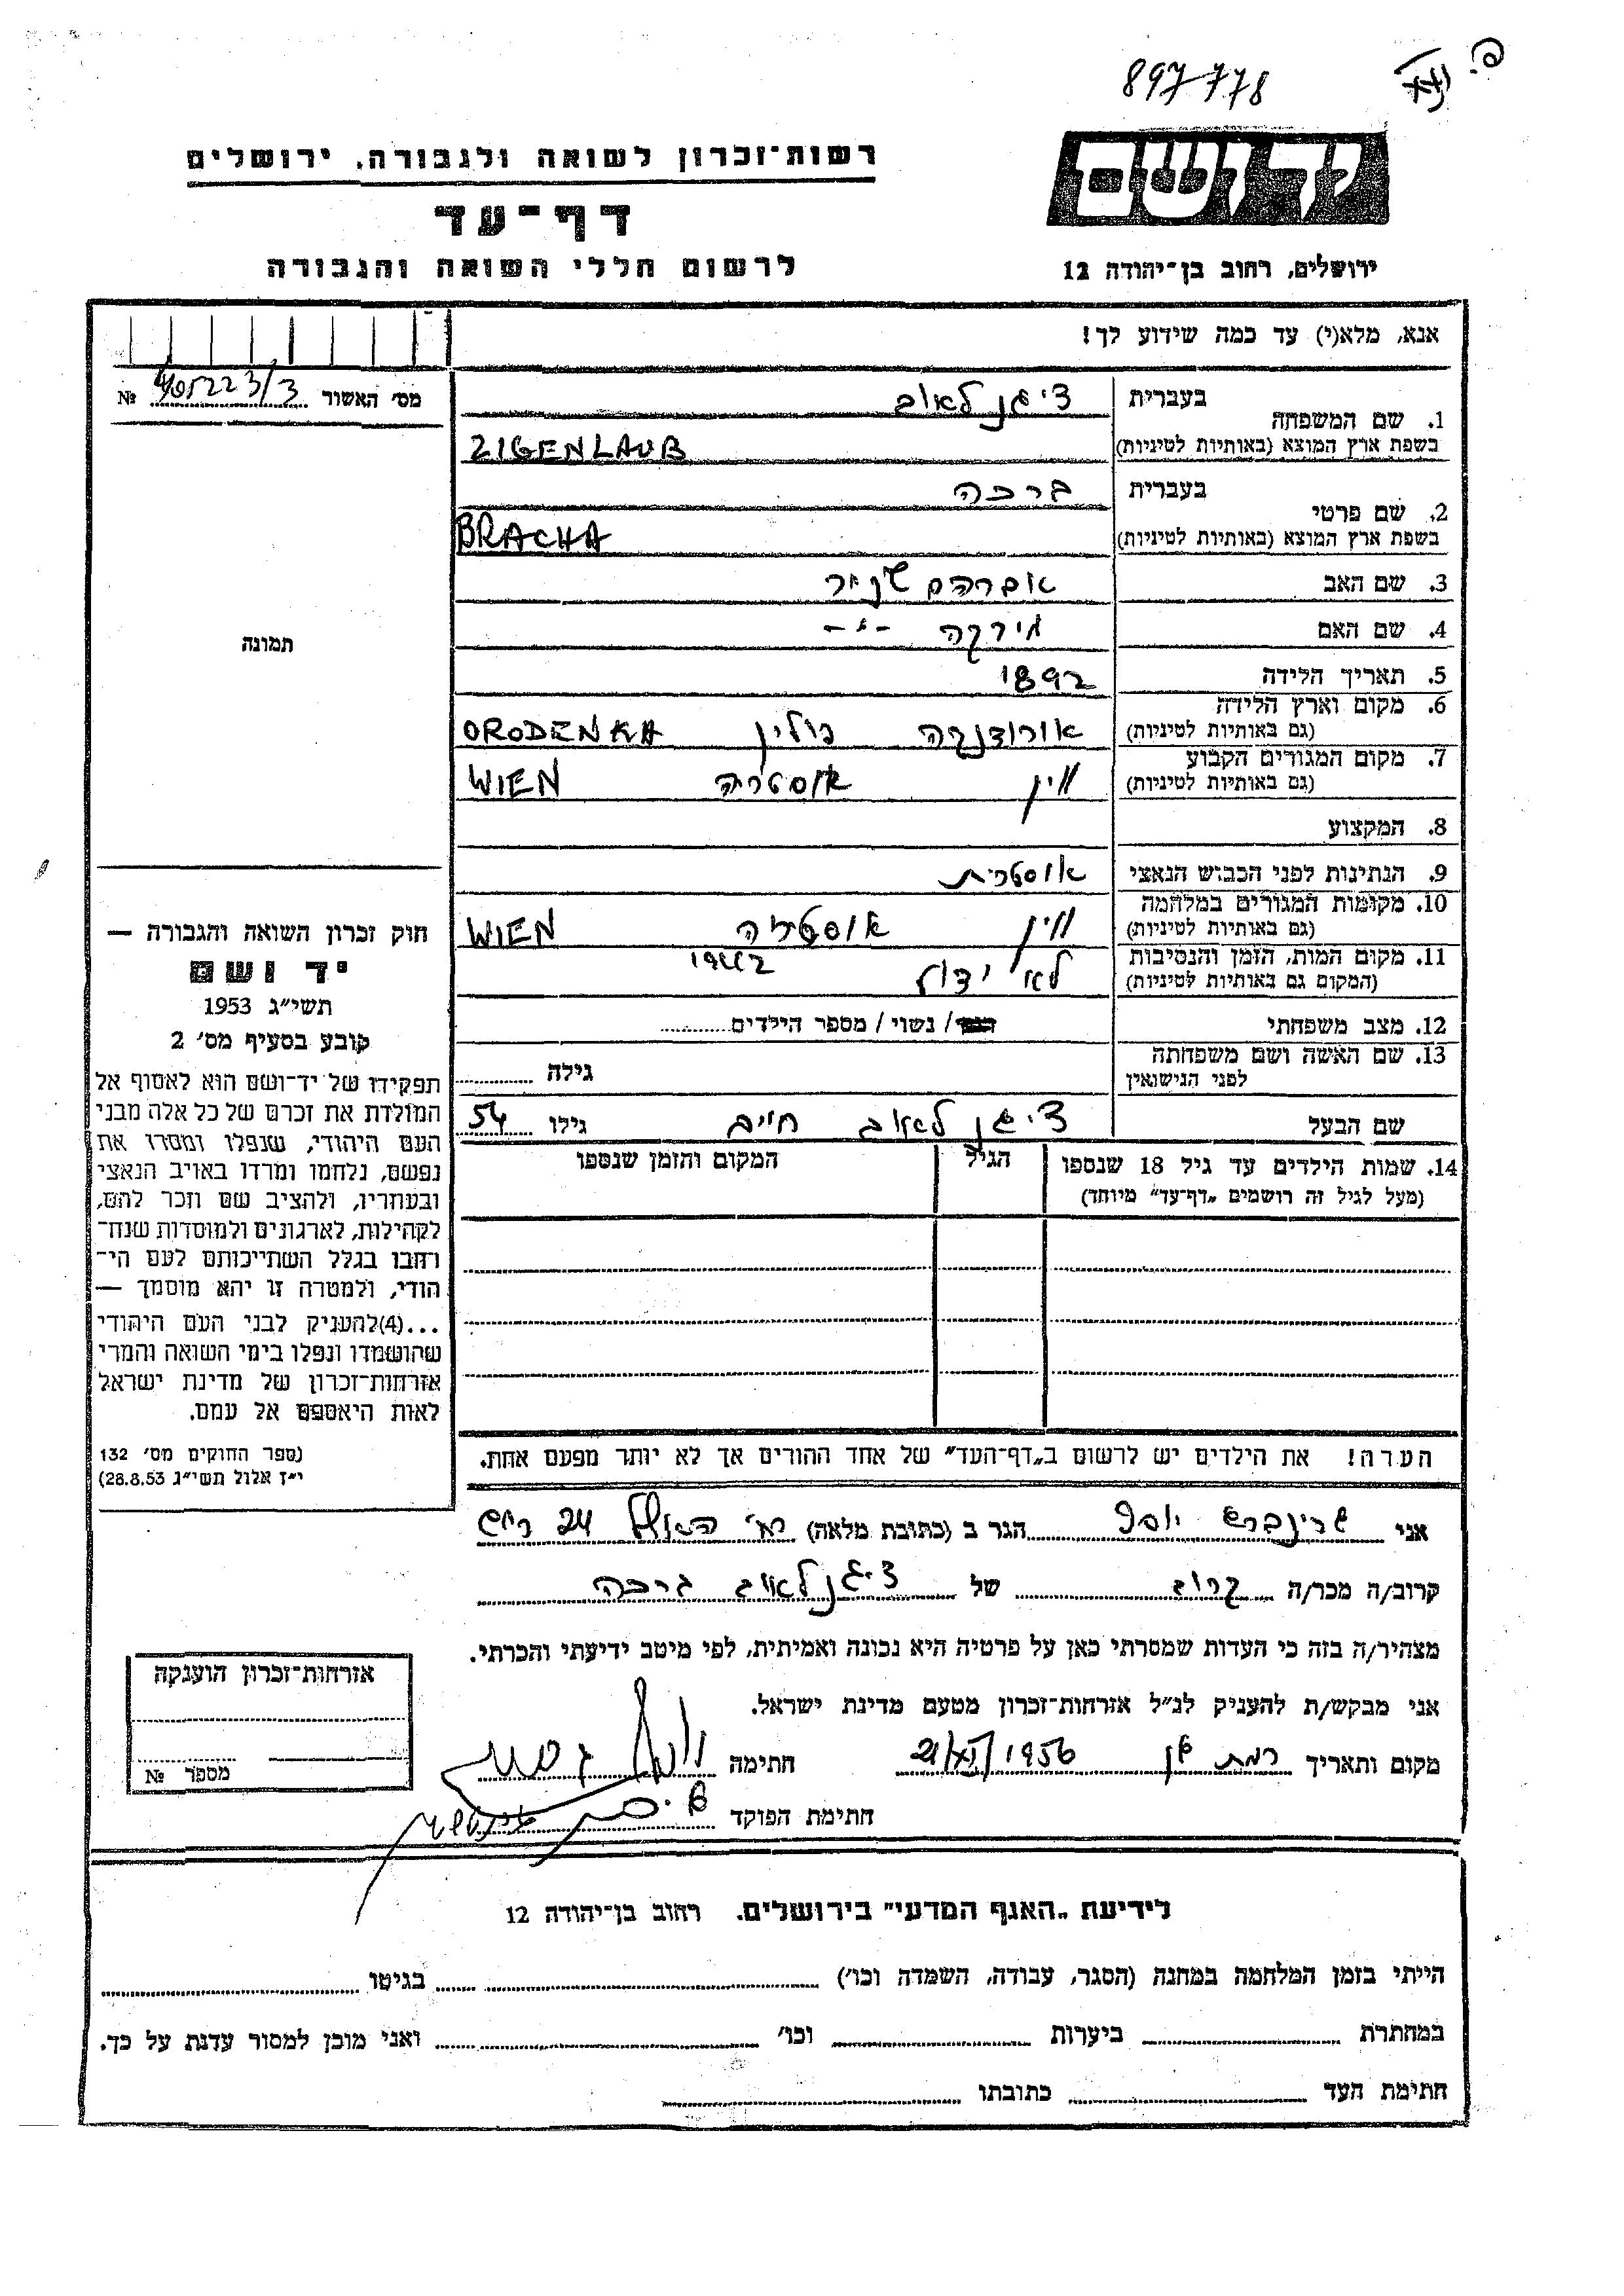 897778
רשות־זכרון לשואה ולגבורה. ירושלים
יד ושם
דף־עד
לרשום חללי השואה והגבורה
ירושלים, רחוב בן־יהודה 12
אנא, מלא(י) עד כמה שידוע לך!
מס׳ האשור №
1. שם המשפחה בעברית ציגנלאוב
בשפת ארץ המוצא (באותיות לטיניות) ZIGENLAUB
2. שם פרטי בעברית ברכה
בשפת ארץ המוצא (באותיות לטיניות) BRACHA
3. שם האב אברהם שניור
4. שם האם
5. תאריך הלידה 1892
6. מקום וארץ הלידה (גם באותיות לטיניות) אורודנקה פולין ORODENKA
7. מקום המגורים הקבוע (גם באותיות לטיניות) ווין אוסטריה WIEN
8. המקצוע
9. הנתינות לפני הכבוש הנאצי אוסטרית
10. מקומות המגורים במלחמה (גם באותיות לטיניות) ווין אוסטריה WIEN
11. מקום המות, הזמן והנסיבות (המקום גם באותיות לטיניות) לא ידוע 1942
12. מצב משפחתי רווק / נשוי / מספר הילדים
13. שם האשה ושם משפחתה לפני הנישואין גילה
שם הבעל ציגנלאוב חיים גילו 54
14. שמות הילדים עד גיל 18 שנספו (מעל לגיל זה רושמים „דף־עד״ מיוחד) הגיל המקום והזמן שנספו
תמונה
חוק זכרון השואה והגבורה —
יד ושם
תשי״ג 1953
קובע בסעיף מס׳ 2
תפקידו של יד־ושם הוא לאסוף אל
המולדת את זכרם של כל אלה מבני
העם היהודי, שנפלו ומסרו את
נפשם, נלחמו ומרדו באויב הנאצי
ובעוזריו, ולהציב שם וזכר להם,
לקהילות, לארגונים ולמוסדות שנח־
רבו בגלל השתייכותם לעם הי־
הודי, ולמטרה זו יהא מוסמך —
...(4)להעניק לבני העם היהודי
שהושמדו ונפלו בימי השואה והמרי
אזרחות־זכרון של מדינת ישראל
לאות היאספם אל עמם.
(ספר החוקים מס׳ 132
י״ז אלול תשי״ג 28.8.53)
הערה! את הילדים יש לרשום ב„דף־העד״ של אחד ההורים אך לא יותר מפעם אחת.
אני גרינברג יוסף הגר ב (כתובת מלאה) 24
קרוב/ה מכר/ה קרוב של ציגנלאוב ברכה
מצהיר/ה בזה כי העדות שמסרתי כאן על פרטיה היא נכונה ואמיתית, לפי מיטב ידיעתי והכרתי.
אני מבקש/ת להעניק לנ״ל אזרחות־זכרון מטעם מדינת ישראל.
מקום ותאריך רמת גן 21/XI/1956 חתימה
חתימת הפוקד
אזרחות־זכרון הוענקה
מספר №
לידיעת „האגף המדעי״ בירושלים. רחוב בן־יהודה 12
הייתי בזמן המלחמה במחנה (הסגר, עבודה, השמדה וכו׳) בגיטו
במחתרת ביערות וכו׳ ואני מוכן למסור עדות על כך.
חתימת העד כתובתו